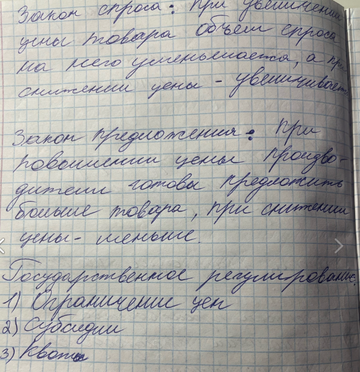 Закон спроса: при увеличении
цены товара объём спроса
на него уменьшается, а при
снижении цены - увеличивает
Закон предложения: при
повышении цены произво-
дители готовы предложить
больше товара, при снижении
цены - меньше.
Государственное регулирование:
1) Ограничение цен
2) Субсидии
3) Квоты